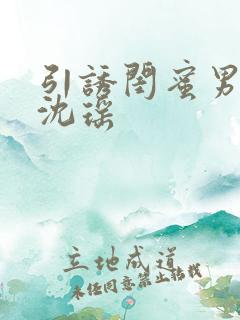 引誘閨蜜男
沈瑶
立地成道
未经同意禁止转载